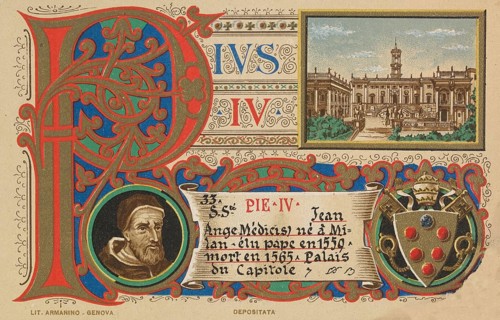 PIUS
IV
33
S. Sté PIE·IV· Jean
Ange Médicis, né à Mi-
lan - élu pape en 1559
mort en 1565. Palais
du Capitole
LIT. ARMANINO - GENOVA
DEPOSITATA